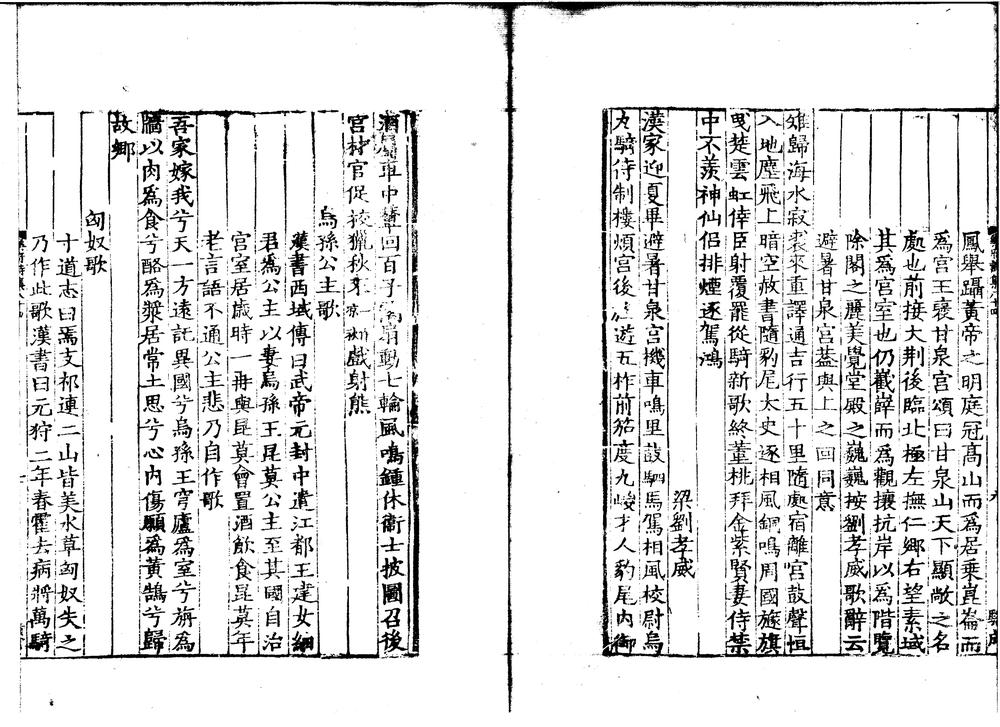 鳳舉躡黃帝之明庭冠髙山而爲居乗崑崙而
爲宮王襃甘泉宮頌曰甘泉山天下顯敞之名
處也前接大荆後臨北極左撫仁鄉右望素域
其爲宮室也仍嶻嶭而爲觀攘抗岸以爲階覽
除閣之麗美覺堂殿之巍巍按劉孝威歌辭云
避暑甘泉宮蓋與上之回同意
雉歸海水寂裘來重譯通吉行五十里隨處宿離宮鼓聲恒
入地塵飛上暗空赦書隨豹尾太史逐相風銅鳴周國旞旗
曳楚雲虹倖臣射覆罷從騎新歌終董桃拜金紫賢妻侍禁
中不羨神仙侶排煙逐駕鴻
梁劉孝威
漢家迎夏畢避暑甘泉宮機車鳴里鼓駟馬駕相風校尉烏
丸騎待制樓煩宮後遊五柞前度九嵕才人豹尾內御
酒屬車中輦回百子扇動七輪風鳴鍾休衛士披圖召後
宮材官促校獵秋來戲射熊
烏孫公主歌
漢書西域傳曰武帝元封中遣江都王建女細
君爲公主以妻烏孫王昆莫公主至其國自治
宮室居歲時一再與昆莫會置酒飲食昆莫年
老言語不通公主悲乃自作歌
吾家嫁我兮天一方遠託異國兮烏孫王穹廬爲室兮旃爲
牆以肉爲食兮酪爲漿居常土思兮心內傷願爲黃鵠兮歸
故鄉
匈奴歌
十道志曰焉支祁連二山皆美水草匈奴失之
乃作此歌漢書曰元狩二年春霍去病將萬騎